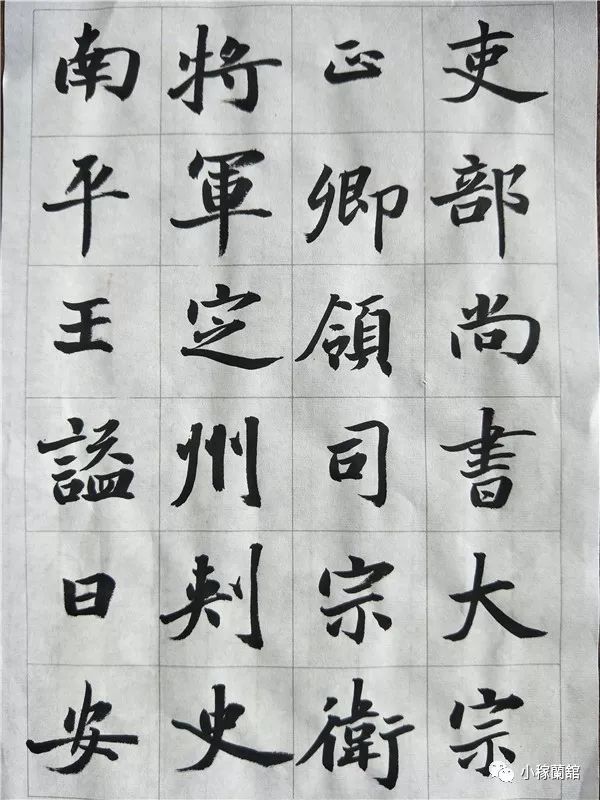 吏部尚書大宗
正卿領司宗衛
將軍定州刺史
南平王謚曰安
小稼蘭舘